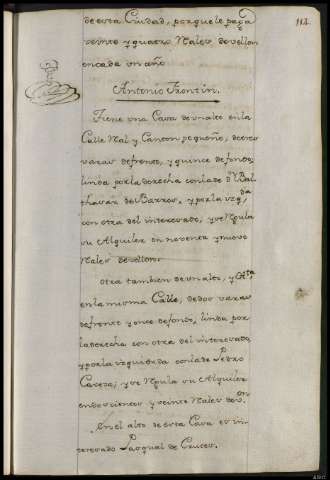 112.
de esta Ciudad, porque le paga
veinte y quatro Rales de vellon
en cada un año
Antonio Frontin.
Tiene una Casa de un alto en la
Calle Rl. y Canton pequeño, de seis
varas de frente, y quince de fondo,
linda por la derecha con la de Dn. Bal-
thasar del Barrio, y por la yzqda.
con otra del interesado, y se Regula
su Alquiler en noventa y nuebe
Rales de vellon.
Otra tambien de un alto, y
en la misma Calle, de dos varas
de frente y once de fondo, linda por
la derecha con otra del interesado,
y por la yzquierda con la de Pedro
Cavesa, y se Regula su Alquiler
en doscientos y veinte Rales de von.
En el alto de esta Casa es in-
teresado Pasqual de Couceo.